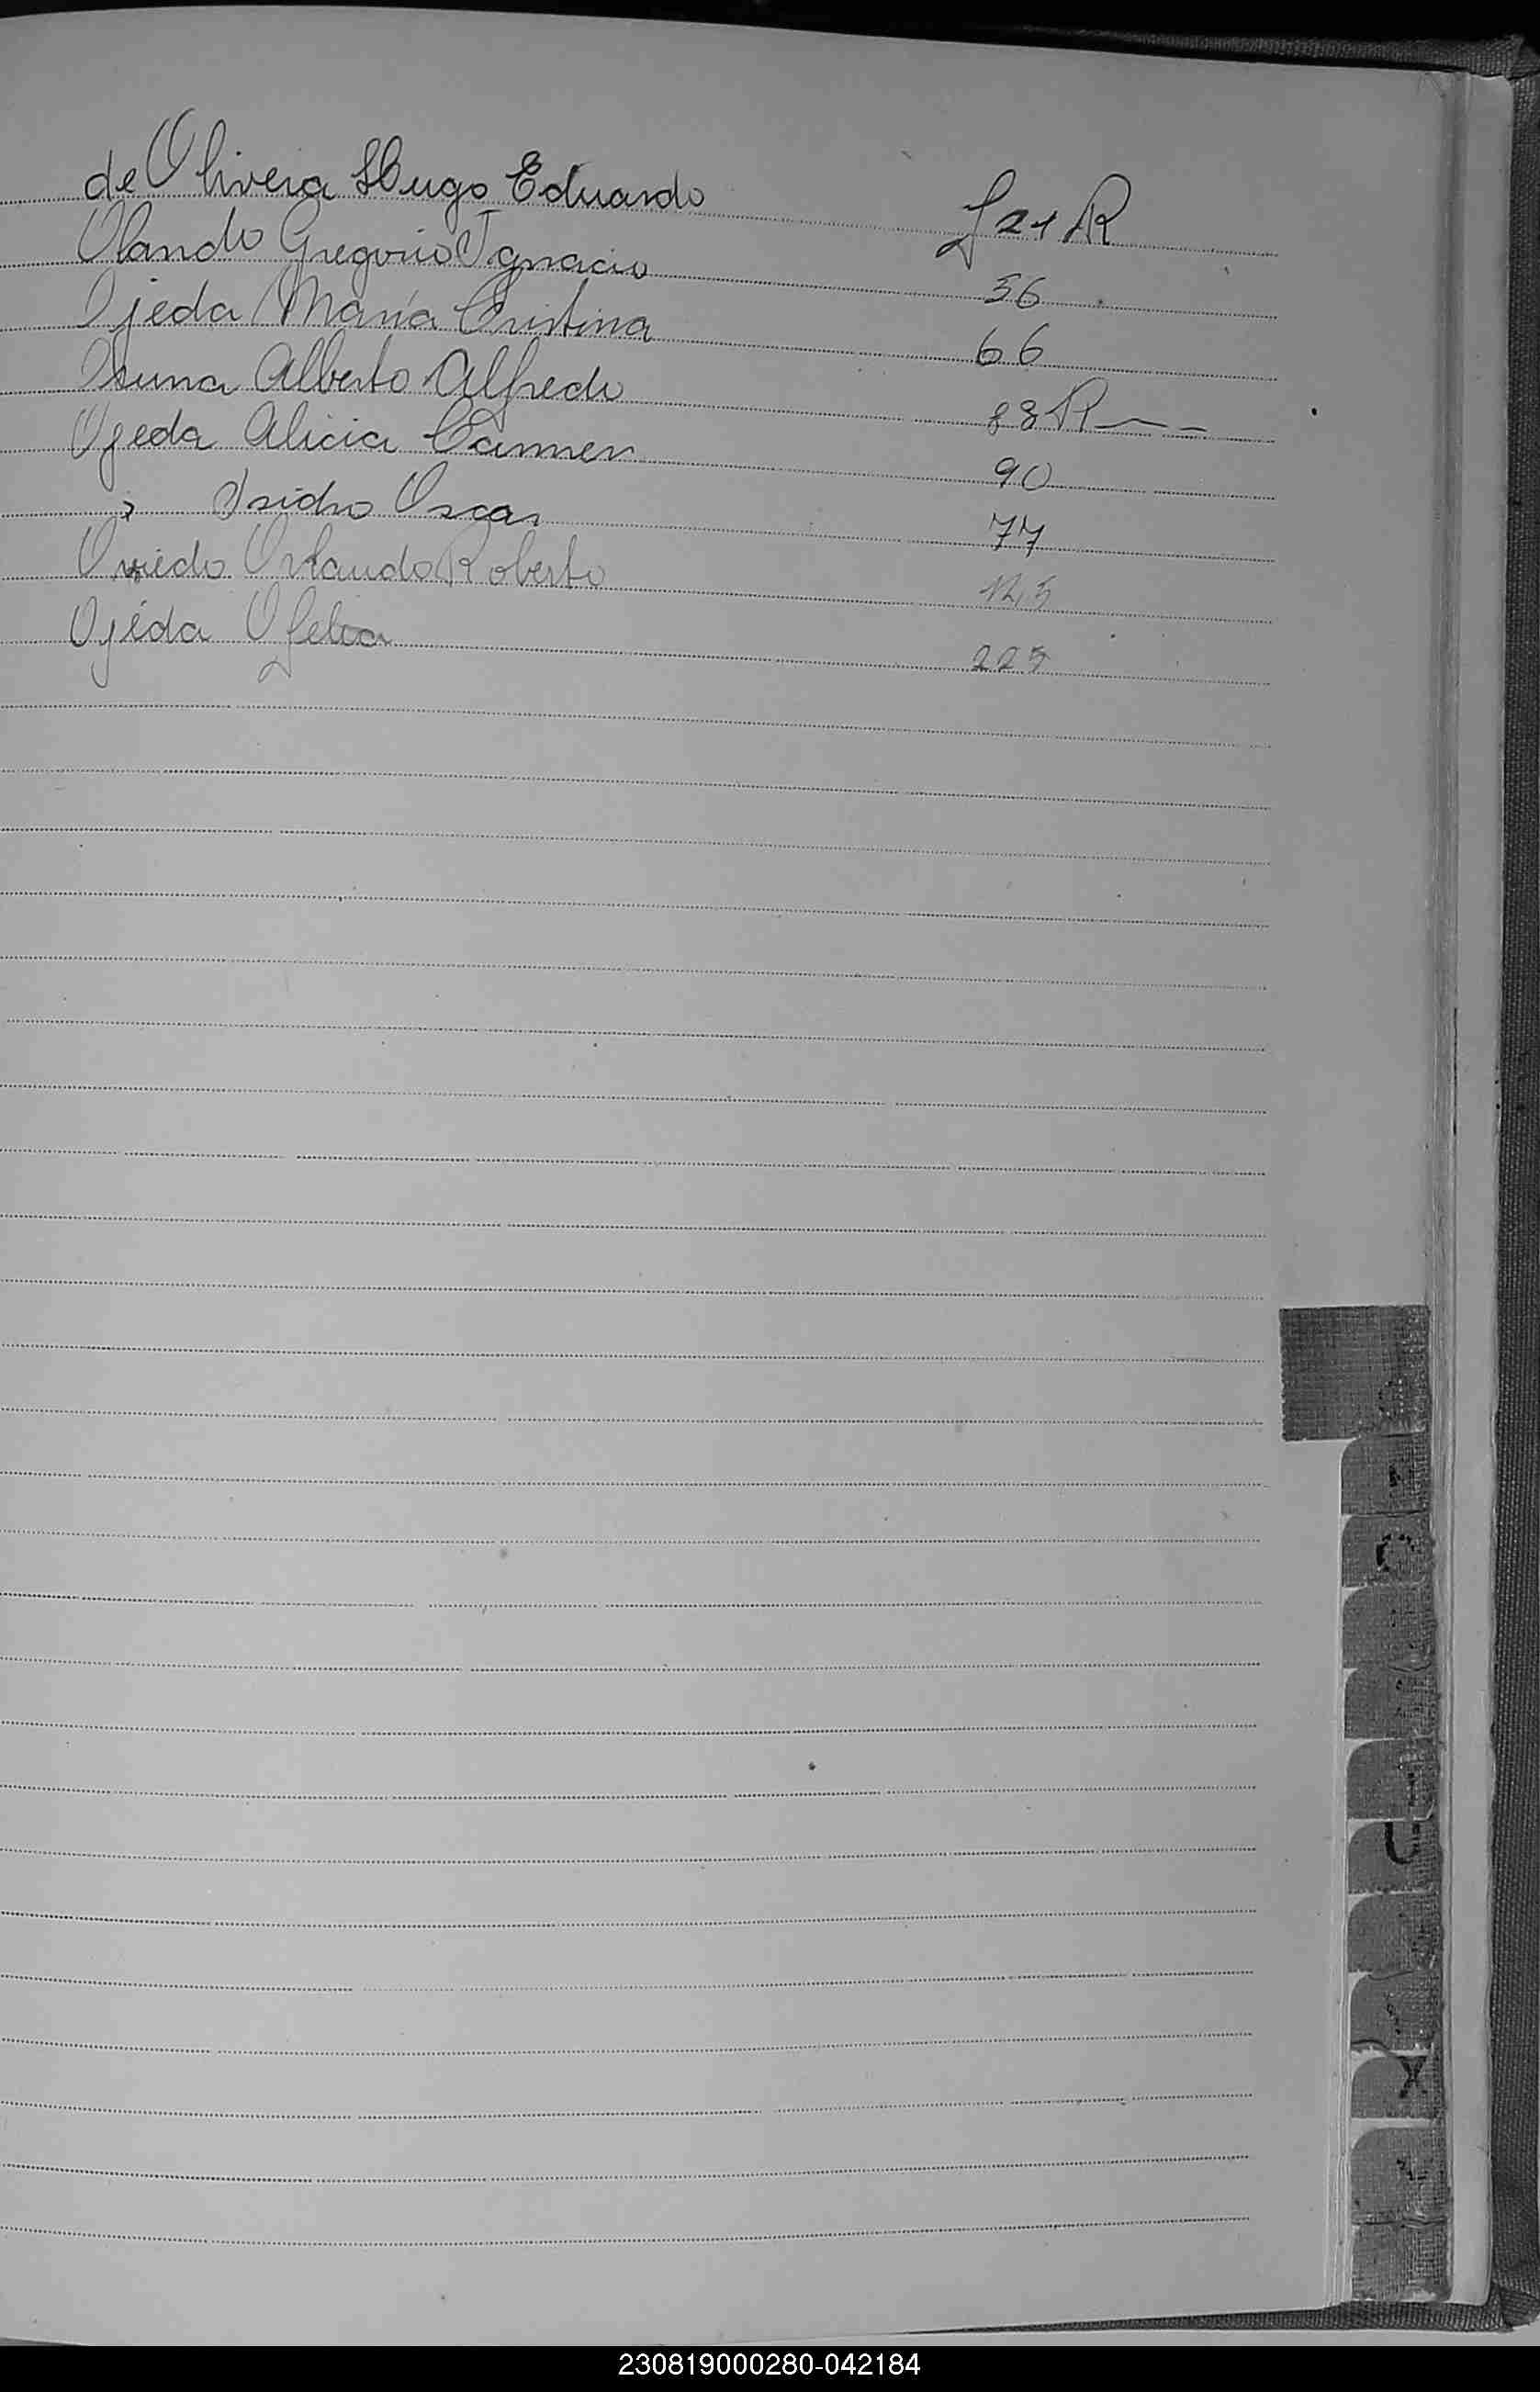 de Olivera Hugo Eduardo f 21 R
Olando Gregorio Ignacio 56
Ojeda María Cristina 66
Osuna Alberto Alfredo 88 R
Ojeda Alicia Carmen 90
" Isidro Oscar 77
Oviedo Orlando Roberto
Ojeda Ofelia 225
U
X
230819000280-042184